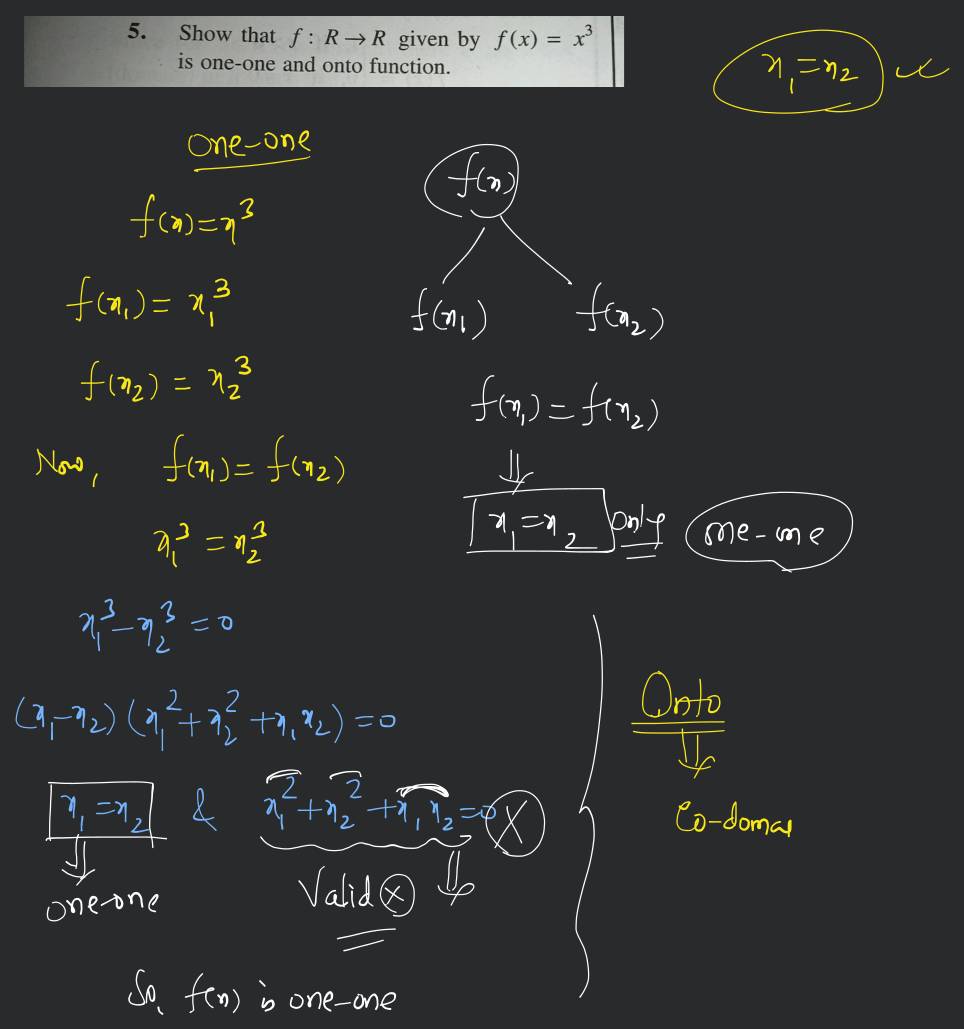 5. Show that f : R → R given by f(x) = x³
is one-one and onto function.
x₁=x₂
One-one
f(x)=x³
f(x₁)= x₁³
f(x₂) = x₂³
Now, f(x₁)= f(x₂)
x₁³ = x₂³
x₁³-x₂³=0
(x₁-x₂)(x₁²+x₂²+x₁x₂)=0
x₁=x₂ & x₁²+x₂²+x₁x₂=0 X
one-one Valid X
So, f(x) is one-one
f(x)
f(x₁) f(x₂)
f(x₁)=f(x₂)
⇓
x₁=x₂ only one-one
Onto
⇓
Co-domai